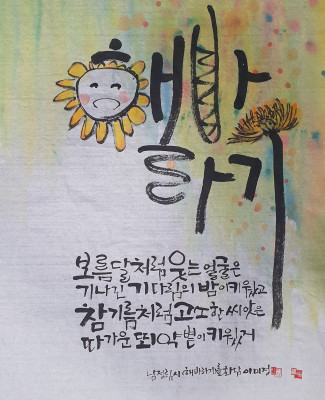 해바
라기
보름달처럼 웃는 얼굴은
기나긴 기다림의 밤이 키웠고
참기름처럼 고소한 씨앗은
따가운 뙤약볕이 키웠거
남정림 시 (해바라기를